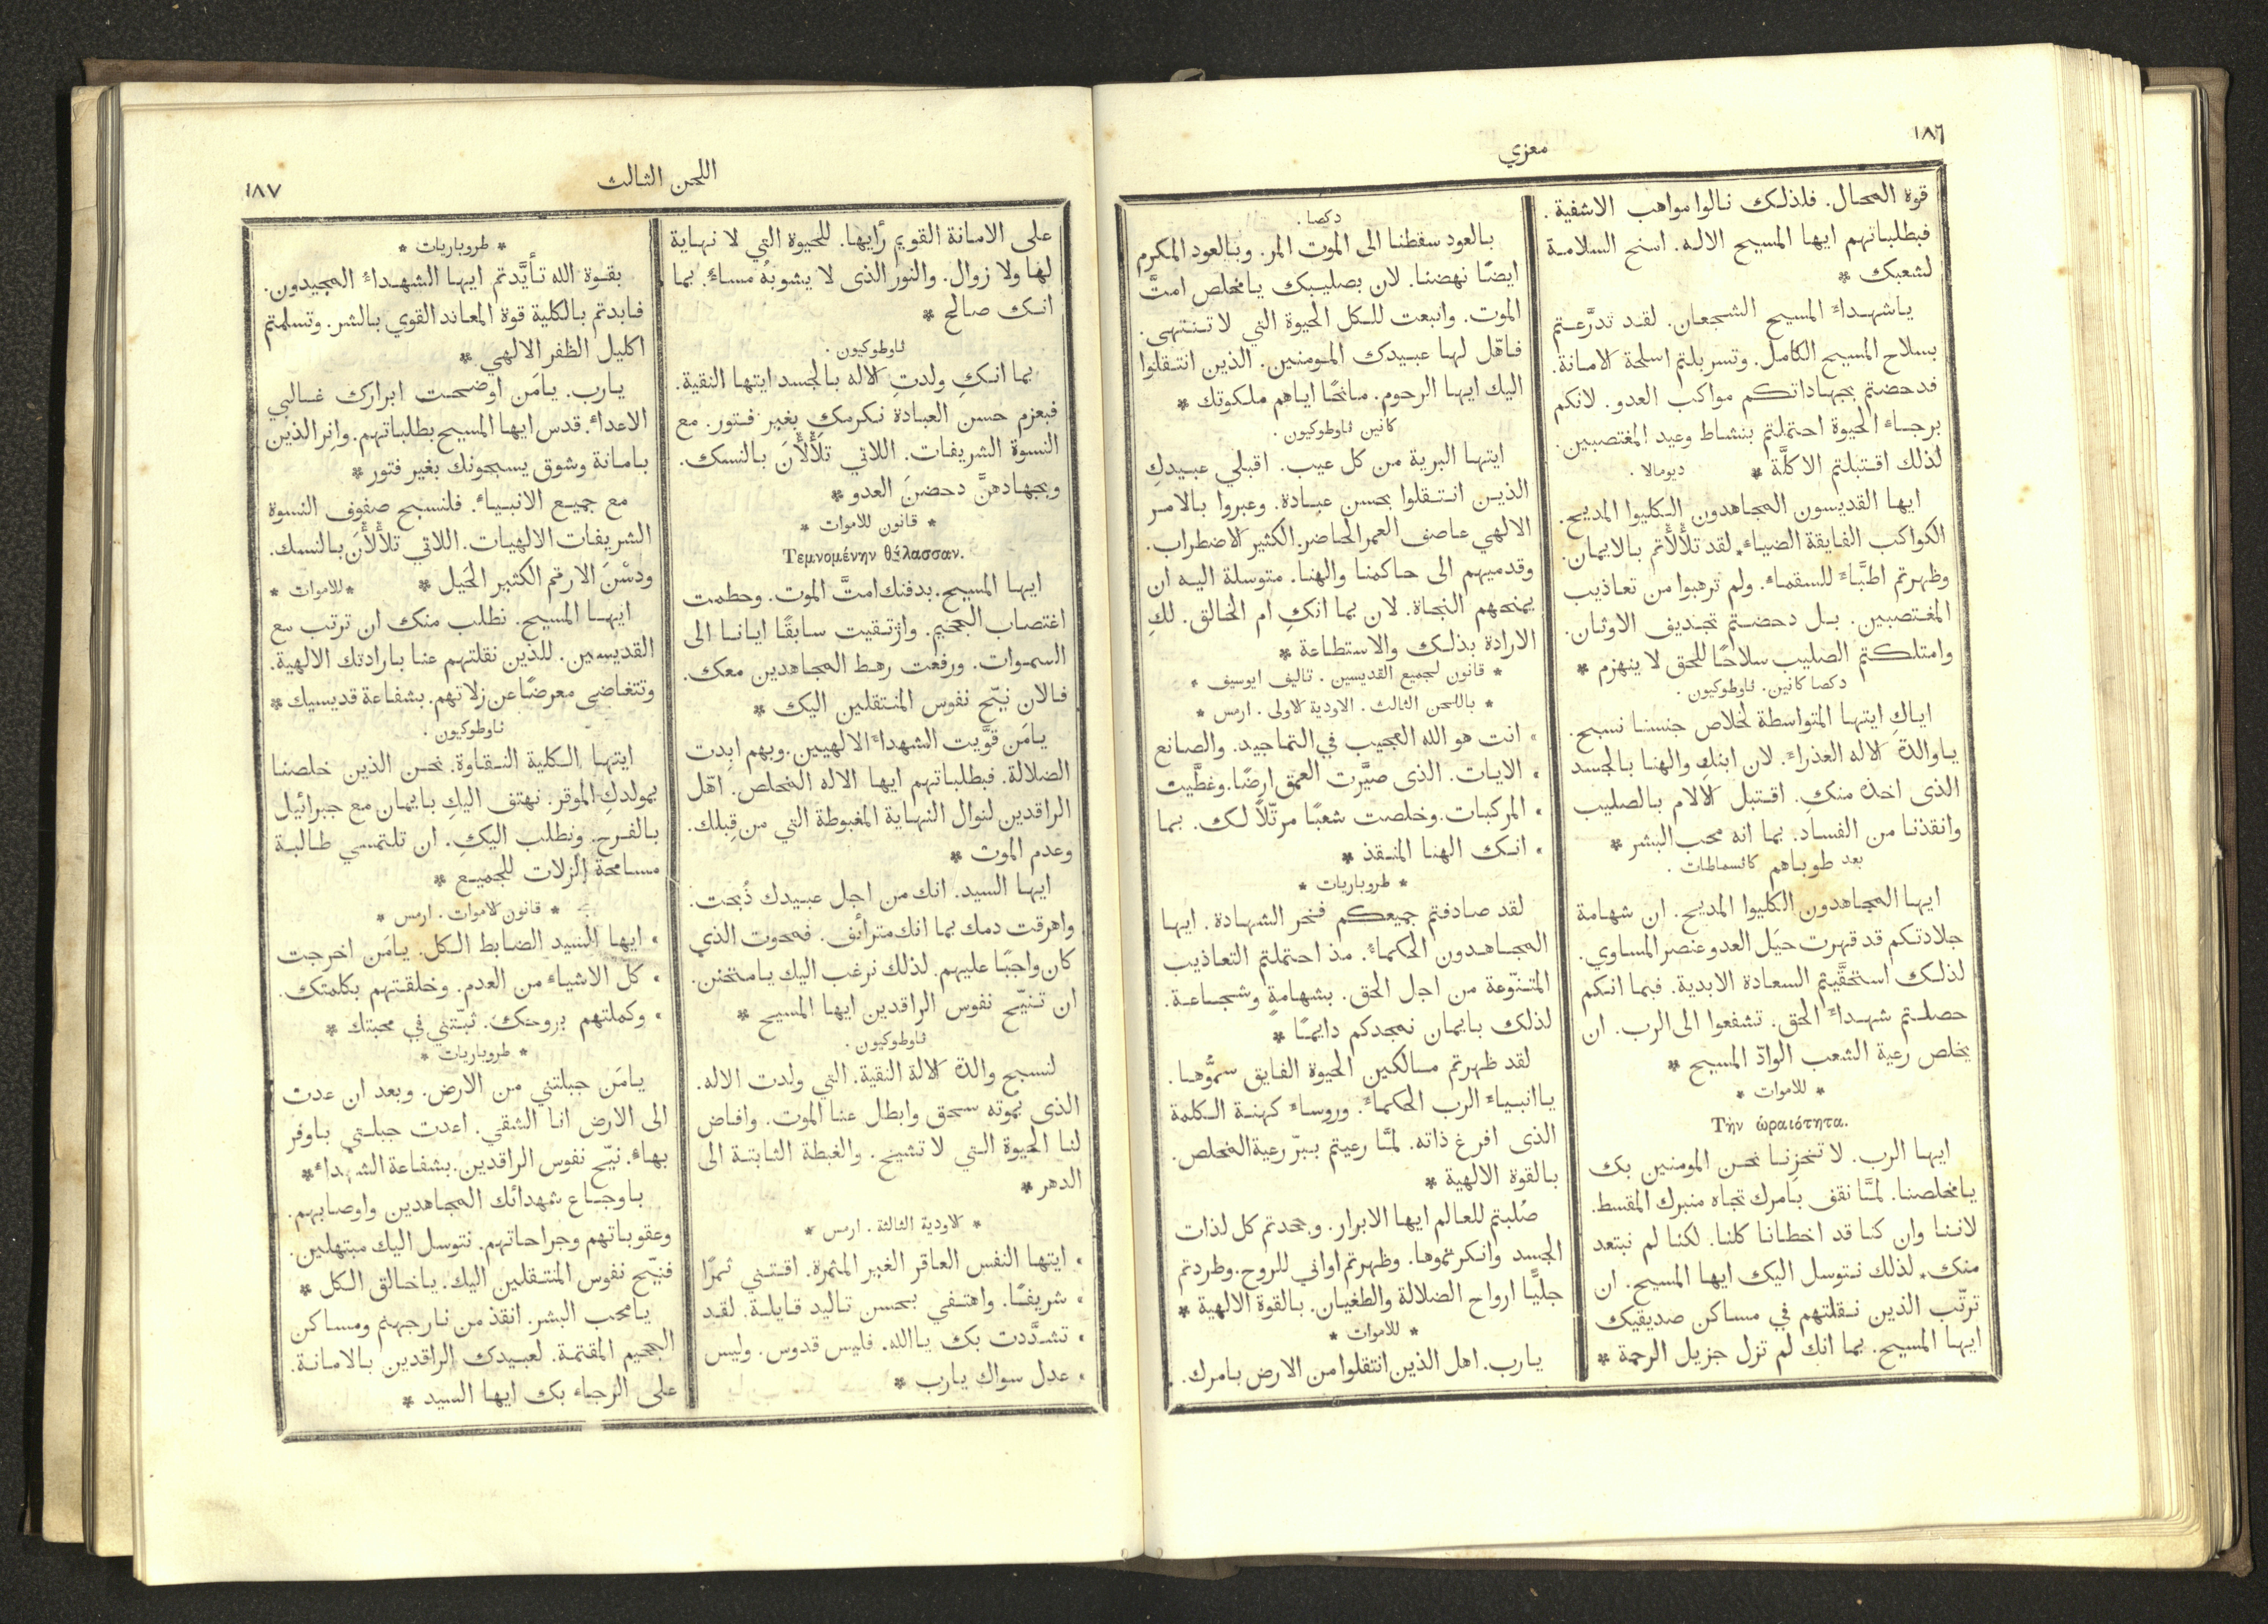 ١٨٦
معزي
قوة المحال. فلذلك نالوا مواهب الاشفية.
فبطلباتهم ايها المسيح الاله. امنح السلامة
لشعبك *
ياشهداءَ المسيح الشجعان. لقد تدرَّعتم
بسلاح المسيح الكامل. وتسربلتم اسلحة الامانة.
فدحضتم بجهاداتكم مواكب العدو. لانكم
برجاءِ الحيوة احتملتم بنشاط وعيد المغتصبين.
لذلك اقتبلتم الاكلَّة * ديومالا.
ايها القديسون المجاهدون الكليوا المديح.
الكواكب الفايقة الضياءِ. لقد تلأْلأْتم بالايمان.
وظهرتم اطبَّاءَ للسقماءِ. ولم ترهبوا من تعاذيب
المغتصبين. بل دحضتم تجديف الاوثان.
وامتلكتم الصليب سلاحًا للحق لا ينهزم *
دكصا كانين. ثاوطوكيون.
اياكِ ايتها المتواسطة لخلاص جنسنا نسبح.
ياوالدة الاله العذراءَ. لان ابنكِ والهنا بالجسد
الذى اخذه منكِ. اقتبل الالام بالصليب
وانقذنا من الفساد. بما انه محب البشر *
بعد طوباهم كاثسماطات.
ايها المجاهدون الكليوا المديح. ان شهامة
جلادتكم قد قهرت حيَل العدو عنصر المساوي.
لذلك استحقَّيتم السعادة الابدية. فبما انكم
حصلتم شهداءَ الحق. تشفعوا الى الرب. ان
يخلص رعية الشعب الوادّ المسيح *
* للاموات *
Τὴν ὡραιότητα.
ايها الرب. لا تخزِنا نحن المومنين بك
يامخلصنا. لمَّا نقف بامرك تجاه منبرك المقسط.
لاننا وان كنا قد اخطانا كلنا. لكنا لم نبتعد
منك. لذلك نتوسل اليك ايها المسيح. ان
ترتّب الذين نقلتهم في مساكن صديقيك
ايها المسيح. بما انك لم تزل جزيل الرحمة *
دكصا.
بالعود سقطنا الى الموت المر. وبالعود المكرم
ايضًا نهضنا. لان بصليبك يامخلص امتَّ
الموت. وانبعت للكل الحيوة التي لا تنتهى.
فاهّل لها عبيدك المومنين. الذين انتقلوا
اليك ايها الرحوم. مانحًا اياهم ملكوتك *
كانين ثاوطوكيون.
ايتها البرية من كل عيب. اقبلي عبيدكِ
الذين انتقلوا بحسن عبادة. وعبروا بالامر
الالهي عاصف العمر الحاضر. الكثير الاضطراب.
وقدميهم الى حاكمنا والهنا. متوسلة اليه ان
يمنحهم النجاة. لان بما انكِ ام الخالق. لكِ
الارادة بذلك والاستطاعة *
* قانون لجميع القديسين. تاليف ايوسيف *
* باللحن الثالث. الاودية الاولى. ارمس *
، انت هو الله العجيب في التماجيد. والصانع
، الايات. الذى صيَّرت العمق ارضًا. وغطَّيت
، المركبات. وخلصت شعبًا مرتّلًا لك. بما
، انك الهنا المنقذ *
* طروباريات *
لقد صادفتم جميعكم فخر الشهادة. ايها
المجاهدون الحكماءُ. مذ احتملتم التعاذيب
المتنوّعة من اجل الحق. بشهامةٍ وشجاعة.
لذلك بايمان نمجدكم دايمًا *
لقد ظهرتم مسالكين الحيوة الفايق سموُّها.
ياانبياءَ الرب الحكماءَ. وروساءَ كهنة الكلمة
الذى افرغ ذاته. لمَّا رعيتم ببرّ رعية المخلص.
بالقوة الالهية *
صُلبتم للعالم ايها الابرار. وجحدتم كل لذات
الجسد وانكرتموها. وظهرتم اواني للروح. وطردتم
جليًّا ارواح الضلالة والطغيان. بالقوة الالهية *
* للاموات *
يارب. اهل الذين انتقلوا من الارض بامرك.
اللحن الثالث
١٨٧
على الامانة القويم رأيها. للحيوة التي لا نهاية
لها ولا زوال. والنور الذى لا يشوبهُ مساءٌ. بما
انك صالح *
ثاوطوكيون.
بما انكِ ولدتِ الاله بالجسد ايتها النقية.
فبعزم حسن العبادة نكرمكِ بغير فتور. مع
النسوة الشريفات. اللاتي تلأْلأْنَ بالنسك.
وبجهادهنَّ دحضنَ العدو *
* قانون للاموات *
Τεμνομένην θάλασσαν.
ايها المسيح. بدفنك امتَّ الموت. وحطمت
اغتصاب الجحيم. وارتقيت سابقًا ايانا الى
السموات. ورفعت رهط المجاهدين معك.
فالان نيّح نفوس المنتقلين اليك *
يامَن قوَّيت الشهداءَ الالهيين. وبهم ابدت
الضلالة. فبطلباتهم ايها الاله المخلص. اهّل
الراقدين لنوال النهاية المغبوطة التي من قِبلك.
وعدم الموت *
ايها السيد. انك من اجل عبيدك ذُبحت.
واهرقت دمك بما انك مترأئف. فمحوت الذي
كان واجبًا عليهم. لذلك نرغب اليك يامتحنن.
ان تنيّح نفوس الراقدين ايها المسيح *
ثاوطوكيون.
لنسبح والدة الالة النقية. التي ولدت الاله.
الذى بموته سحق وابطل عنا الموت. وافاض
لنا الحيوة التي لا تشيخ. والغبطة الثابتة الى
الدهر *
* الاودية الثالثة. ارمس *
، ايتها النفس العاقر الغير المثمرة. اقتني ثمرًا
، شريفًا. واهتفي بحسن تاليد قايلة. لقد
، تشدَّدت بك ياالله. فليس قدوس. وليس
، عدل سواك يارب *
* طروباريات *
بقوة الله تأيَّدتم ايها الشهداءُ المجيدون.
فابدتم بالكلية قوة المعاند القوي بالشر. وتسلمتم
اكليل الظفر الالهي *
يارب. يامَن اوضحت ابرارك غالبي
الاعداءِ. قدس ايها المسيح بطلباتهم. وانِر الذين
بامانة وشوق يسبحونك بغير فتور *
مع جميع الانبياءِ. فلنسبح صفوف النسوة
الشريفات الالهيات. اللاتي تلأْلأْنَ بالنسك.
ودسْنَ الارقم الكثير الحَيل * * للاموات *
ايها المسيح. نطلب منك ان ترتب مع
القديسين. للذين نقلتهم عنا بارادتك الالهية.
وتتغاضى معرضًا عن زلاتهم. بشفاعة قديسيك *
ثاوطوكيون.
ايتها الكلية النقاوة. نحن الذين خلصنا
بمولدكِ الموقر. نهتف اليكِ بايمان مع جبرائيل
بالفرح. ونطلب اليكِ. ان تلتمسي طالبة
مسامحة الزلات للجميع *
* قانون الاموات. ارمس *
، ايها السيد الضابط الكل. يامَن اخرجت
، كل الاشياءِ من العدم. وخلقتهم بكلمتك.
، وكملتهم بروحك. ثبّتني في محبتك *
* طروباريات *
يامَن جبلتني من الارض. وبعد ان عدت
الى الارض انا الشقي. اعدت جبلتي باوفر
بهاءٍ. نيّح نفوس الراقدين. بشفاعة الشهداءِ *
باوجاع شهدائك المجاهدين واوصابهم.
وعقوباتهم وجراحاتهم. نتوسل اليك مبتهلين.
فنيّح نفوس المنتقلين اليك. ياخالق الكل *
يامحب البشر. انقذ من نار جهنم ومساكن
الجحيم المقتمة. لعبيدك الراقدين بالامانة.
على الرجاءِ بك ايها السيد *